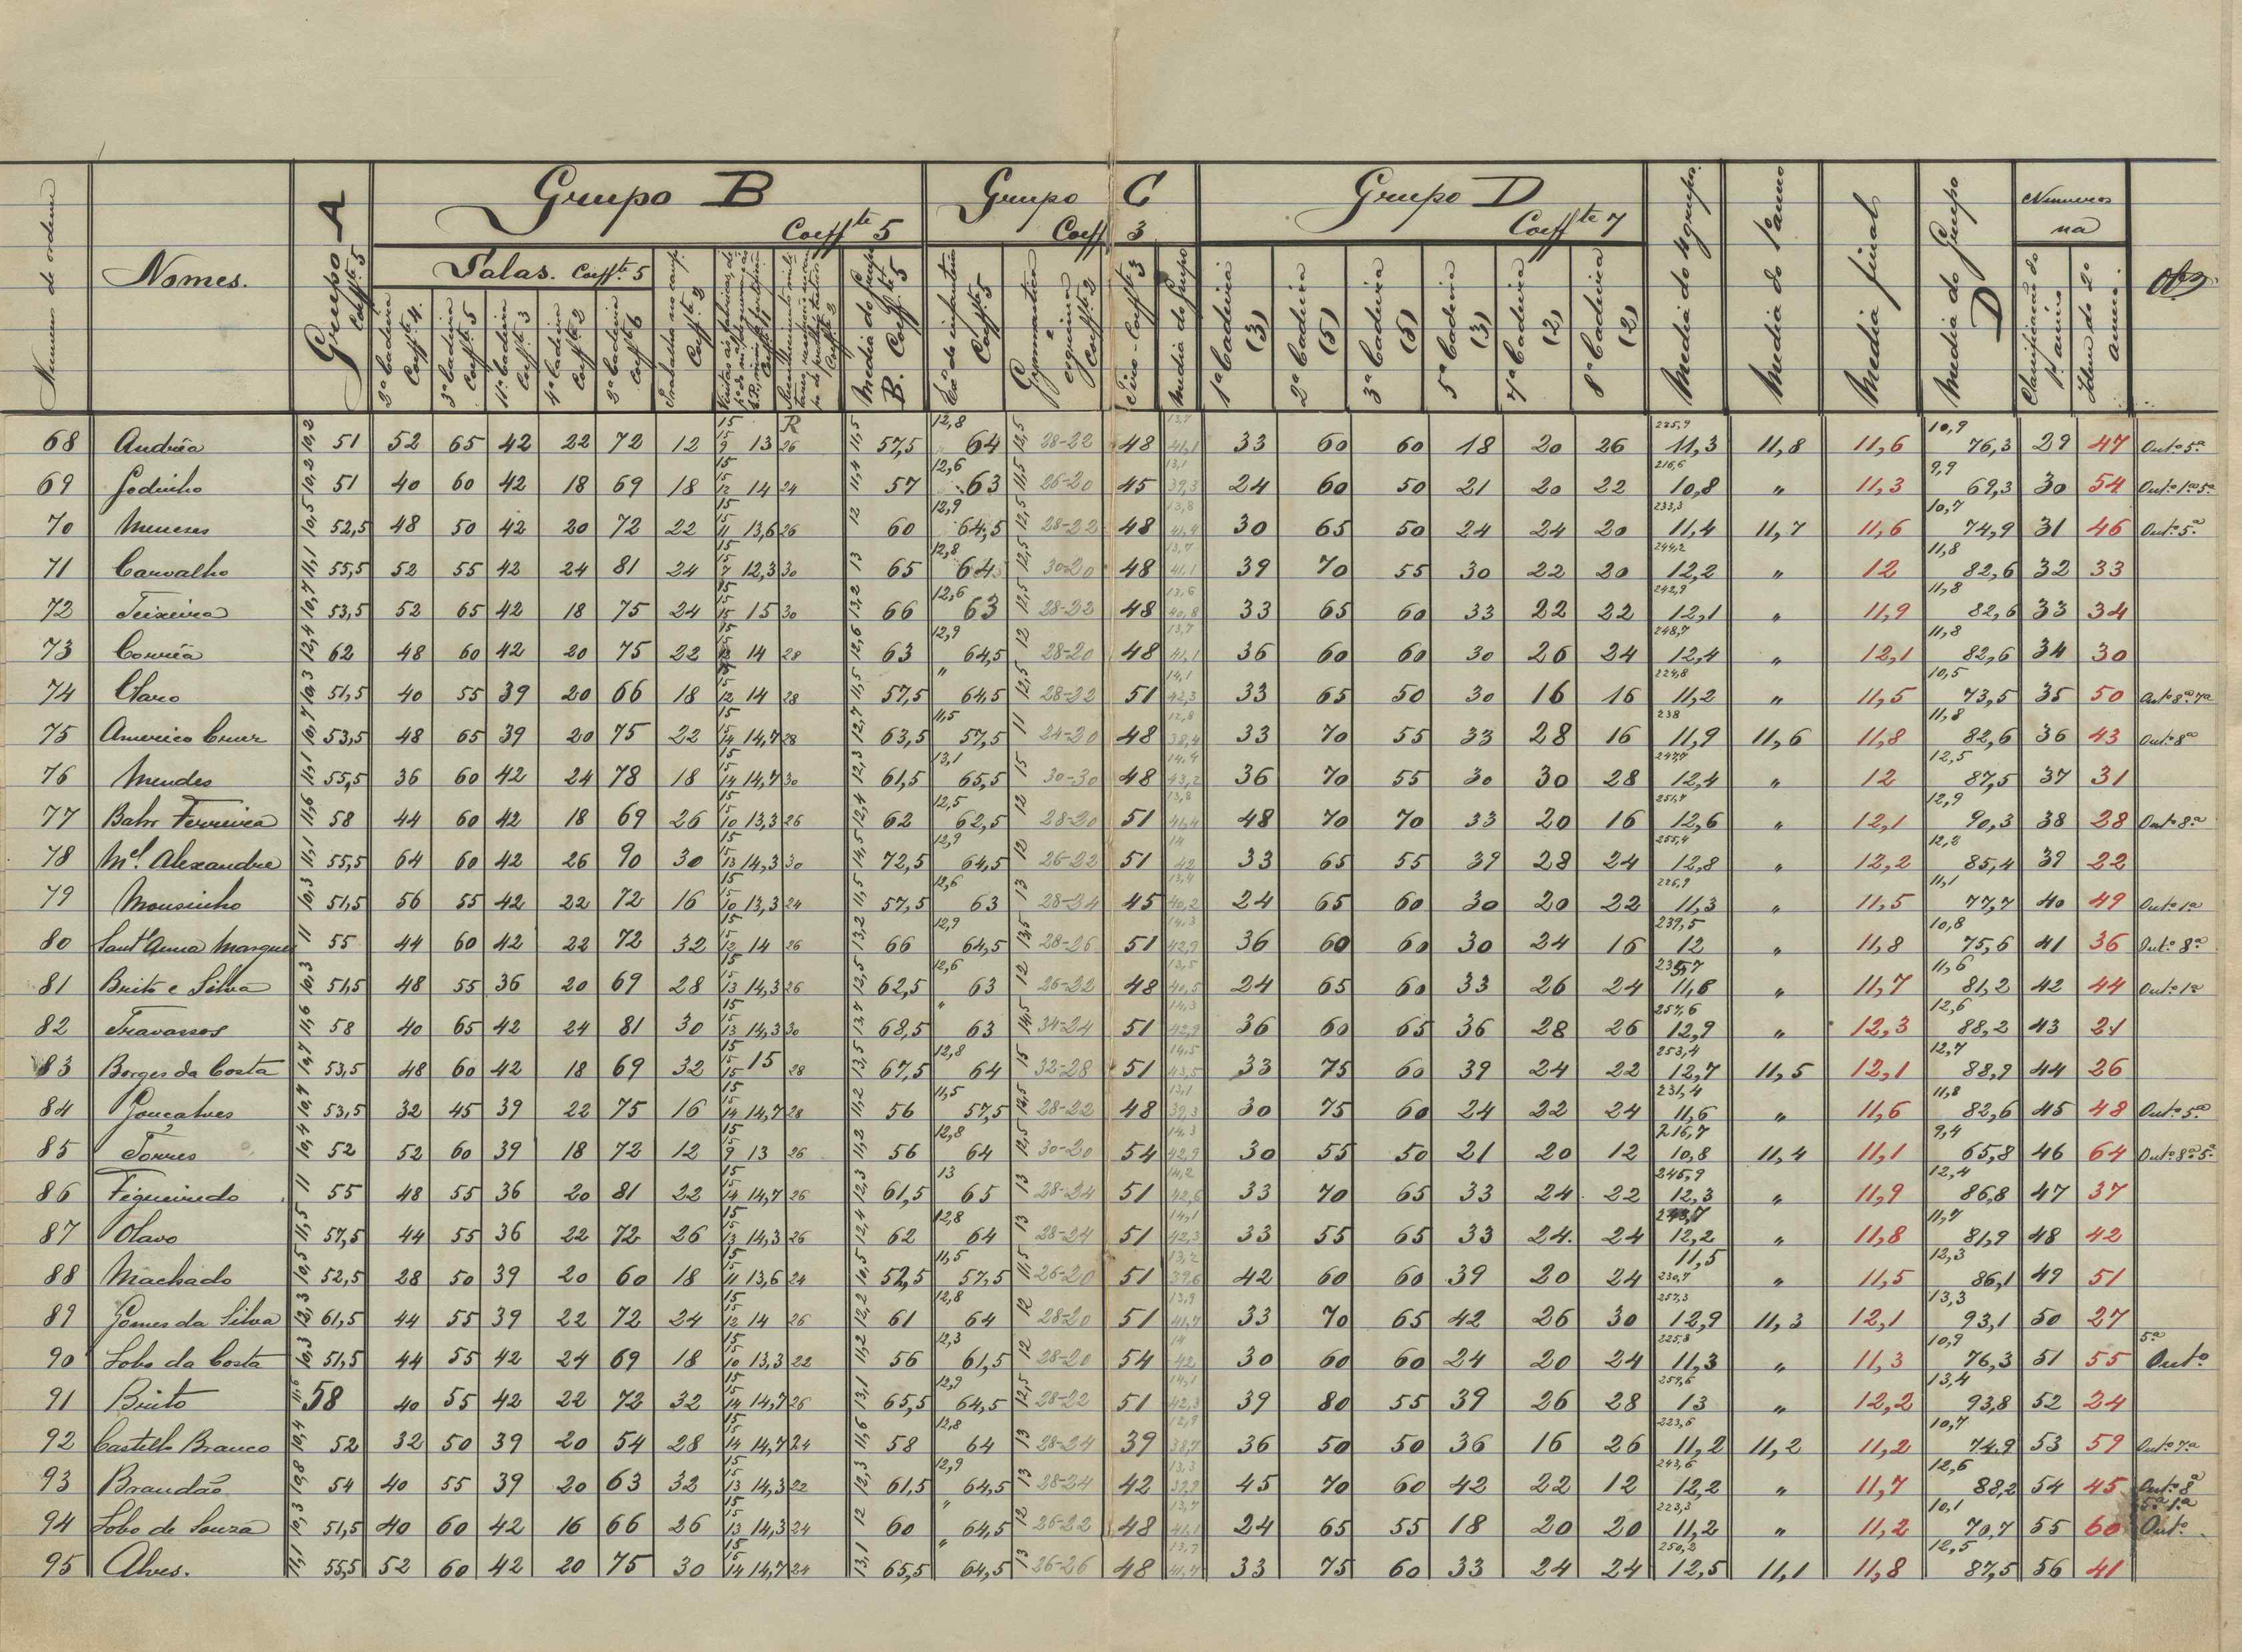 Numero de ordem
Nomes.
Grupo A
Coeff.te 5
Grupo B
Coeff.te 5
Grupo C
Coeff. 3
Grupo D
Coeff.te 7
Media do 4 grupos.
Media do 1º anno
Media final
Media do Grupo D
Numeros na
Classificação do 1º anno
Idem do 2º anno.
Obs.
Talas. Coeff.te 5
2ª Cadeira Coeff.te 4.
3ª Cadeira Coeff.te 5
11ª Cadeira Coeff.te 3
4ª Cadeira Coeff.te 2
Trabalhos no camp. Coeff.te 2
Media do Grupo B. Coeff.te 5
Co. de infanteria Coeff.te 5
Gymnastica e esgrima Coeff.te 2
Tiro - Coeff.te 3
Media do Grupo
1ª Cadeira (3)
2ª Cadeira (5)
3ª Cadeira (5)
5ª Cadeira (3)
7ª Cadeira (2)
8ª Cadeira (2)
68 Andréa 10,2 51 52 65 42 22 72 12 15 15 9 13 R 26 11,5 57,5 12,8 64 12,5 28-22 48 13,7 41,1 33 60 60 18 20 26 225,9 11,3 11,8 11,6 10,9 76,3 29 47 Out.º 5.ª
69 Godinho 10,2 51 40 60 42 18 69 18 15 15 12 14 24 11,4 57 12,6 63 11,5 26-20 45 13,1 39,3 24 60 50 21 20 22 216,6 10,8 " 11,3 9,9 69,3 30 54 Out.º 1.ª 5.ª
70 Meneses 10,5 52,5 48 50 42 20 72 22 15 15 11 13,6 26 12 60 12,9 64,5 12,5 28-22 48 13,8 41,4 30 65 50 24 24 20 233,3 11,4 11,7 11,6 10,7 74,9 31 46 Out.º 5.ª
71 Carvalho 11,1 55,5 52 55 42 24 81 24 15 15 7 12,3 30 13 65 12,8 64 12,5 30-20 48 13,7 41,1 39 70 55 30 22 20 244,2 12,2 " 12 11,8 82,6 32 33
72 Teixeira 10,7 53,5 52 65 42 18 75 24 15 15 15 15 30 13,2 66 12,6 63 12,5 28-22 48 13,6 40,8 33 65 60 33 22 22 242,9 12,1 " 11,9 11,8 82,6 33 34
73 Corrêa 12,4 62 48 60 42 20 75 22 15 15 14 28 12,6 63 12,9 64,5 12 28-20 48 13,7 41,1 36 60 60 30 26 24 248,7 12,4 " 12,1 11,8 82,6 34 30
74 Claro 10,3 51,5 40 55 39 20 66 18 15 15 12 14 28 11,5 57,5 " 64,5 12,5 28-22 51 14,1 42,3 33 65 50 30 16 16 224,8 11,2 " 11,5 10,5 73,5 35 50 Out.º 8.ª 7.ª
75 Americo Cruz 10,7 53,5 48 65 39 20 75 22 15 15 14 14,7 28 12,7 63,5 11,5 57,5 11 24-20 48 12,8 38,4 33 70 55 33 28 16 238 11,9 11,6 11,8 11,8 82,6 36 43 Out.º 8.ª
76 Mendes 11,1 55,5 36 60 42 24 78 18 15 15 14 14,7 30 12,3 61,5 13,1 65,5 15 30-30 48 14,4 43,2 36 70 55 30 30 28 247,7 12,4 " 12 12,5 87,5 37 31
77 Bahr Ferreira 11,6 58 44 60 42 18 69 26 15 15 10 13,3 26 12,4 62 12,5 62,5 12 28-20 51 13,8 41,4 48 70 70 33 20 16 251,7 12,6 " 12,1 12,9 90,3 38 28 Out.º 8.ª
78 M.el Alexandre 11,1 55,5 64 60 42 26 90 30 15 15 13 14,3 30 14,5 72,5 12,9 64,5 12 26-22 51 14 42 33 65 55 39 28 24 255,4 12,8 " 12,2 12,2 85,4 39 22
79 Mousinho 10,3 51,5 56 55 42 22 72 16 15 15 10 13,3 24 11,5 57,5 12,6 63 13 28-24 45 13,4 40,2 24 65 60 30 20 22 226,9 11,3 " 11,5 11,1 77,7 40 49 Out.º 1.ª
80 Sant'Anna Marques 11 55 44 60 42 22 72 32 15 15 12 14 26 13,2 66 12,9 64,5 13,5 28-26 51 14,3 42,9 36 60 60 30 24 16 239,5 12 " 11,8 10,8 75,6 41 36 Out.º 8.ª
81 Brito e Silva 10,3 51,5 48 55 36 20 69 28 15 15 13 14,3 26 12,5 62,5 12,6 63 12 26-22 48 13,5 40,5 24 65 60 33 26 24 11,6 " 11,7 11,6 81,2 42 44 Out.º 1.ª
82 Travassos 11,6 58 40 65 42 24 81 30 15 15 13 14,3 30 13,7 68,5 " 63 14,5 34-24 51 14,3 42,9 36 60 65 36 28 26 257,6 12,9 " 12,3 12,6 88,2 43 21
83 Borges da Costa 10,7 53,5 48 60 42 18 69 32 15 15 15 15 28 13,5 67,5 12,8 64 15 32-28 51 14,5 43,5 33 75 60 39 24 22 253,4 12,7 11,5 12,1 12,7 88,9 44 26
84 Gonçalves 10,7 53,5 32 45 39 22 75 16 15 15 14 14,7 28 11,2 56 11,5 57,5 12,5 28-22 48 13,1 39,3 30 75 60 24 22 24 231,4 11,6 " 11,6 11,8 82,6 45 48 Out.º 5.ª
85 Torres 10,4 52 52 60 39 18 72 12 15 15 9 13 26 11,2 56 12,8 64 12,5 30-20 54 14,3 42,9 30 55 50 21 20 12 216,7 10,8 11,4 11,1 9,4 65,8 46 64 Out.º 8.ª 5.ª
86 Figueiredo 11 55 48 55 36 20 81 22 15 15 14 14,7 26 12,3 61,5 13 65 13 28-24 51 14,2 42,6 33 70 65 33 24 22 245,9 12,3 " 11,9 12,4 86,8 47 37
87 Olavo 11,5 57,5 44 55 36 22 72 26 15 15 13 14,3 26 12,4 62 12,8 64 13 28-24 51 14,1 42,3 33 55 65 33 24 24 12,2 " 11,8 11,7 81,9 48 42
88 Machado 10,5 52,5 28 50 39 20 60 18 15 15 11 13,6 24 10,5 52,5 11,5 57,5 11,5 26-20 51 13,2 39,6 42 60 60 39 20 24 11,5 230,7 " 11,5 12,3 86,1 49 51
89 Gomes da Silva 12,3 61,5 44 55 39 22 72 24 15 15 12 14 26 12,2 61 12,8 64 12 28-20 51 13,9 41,7 33 70 65 42 26 30 257,3 12,9 11,3 12,1 13,3 93,1 50 27
90 Lobo da Costa 10,3 51,5 44 55 42 24 69 18 15 15 10 13,3 22 11,2 56 12,3 61,5 12 28-20 54 14 42 30 60 60 24 20 24 225,8 11,3 " 11,3 10,9 76,3 51 55 5.ª Out.º
91 Brito 11,6 58 40 55 42 22 72 32 15 15 14 14,7 26 13,1 65,5 12,9 64,5 12,5 28-22 51 14,1 42,3 39 80 55 39 26 28 259,6 13 " 12,2 13,4 93,8 52 24
92 Castello Branco 10,4 52 32 50 39 20 54 28 15 15 14 14,7 24 11,6 58 12,8 64 13 28-24 39 12,9 38,7 36 50 50 36 16 26 223,6 11,2 11,2 11,2 10,7 74,9 53 59 Out.º 7.ª
93 Brandão 10,8 54 40 55 39 20 63 32 15 15 13 14,3 22 12,3 61,5 12,9 64,5 13 28-24 42 13,3 39,9 45 70 60 42 22 12 243,6 12,2 " 11,7 12,6 88,2 54 45 Out.º 8.ª
94 Lobo de Souza 10,3 51,5 40 60 42 16 66 26 15 15 13 14,3 24 12 60 " 64,5 12 26-22 48 13,7 41,1 24 65 55 18 20 20 223,3 11,2 " 11,2 10,1 70,7 55 60 5.ª 1.ª Out.º
95 Alves. 11,1 55,5 52 60 42 20 75 30 15 15 14 14,7 24 13,1 65,5 " 64,5 13 26-26 48 13,9 41,7 33 75 60 33 24 24 250,2 12,5 11,1 11,8 12,5 87,5 56 41